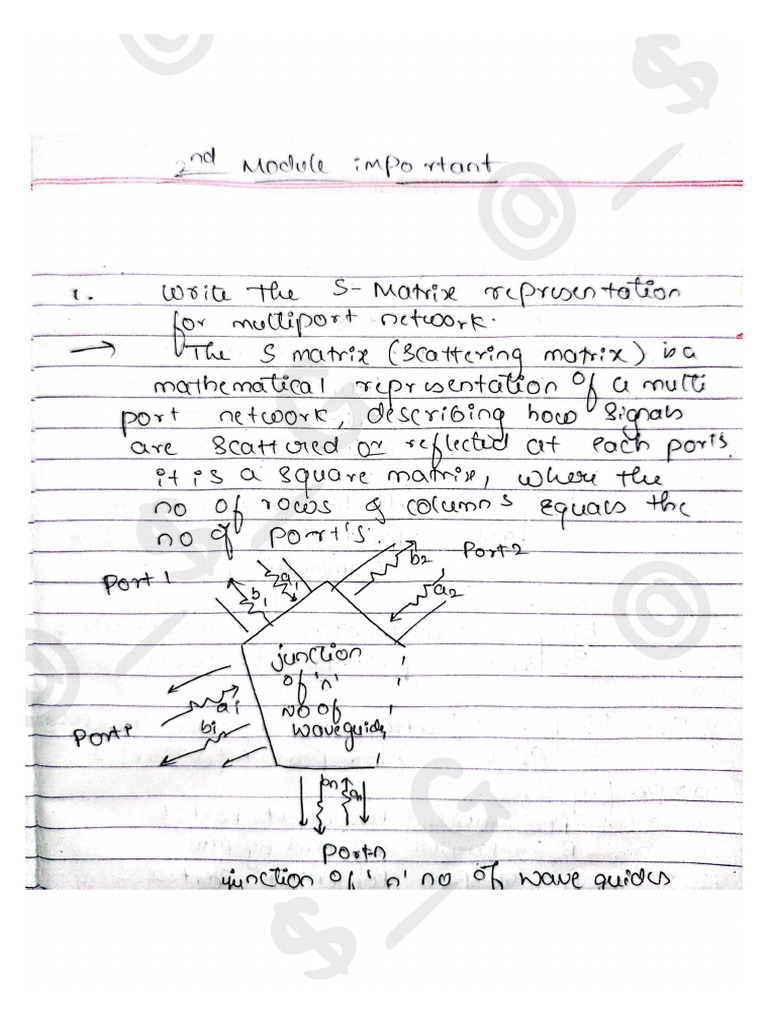 2nd Module important
1. Write the S-Matrix representation
for multiport network.
→ The S matrix (Scattering matrix) is a
mathematical representation of a multi
port network, describing how signals
are scattered or reflected at each ports.
it is a square matrix, where the
no of rows & columns equals the
no of port's.
Port 1
b1
a1
b2
Port 2
a2
junction
of 'n'
no of
waveguides
Port i
ai
bi
bn
an
Port n
junction of 'n' no of wave guides
@_$_G_@_$_G_@_$